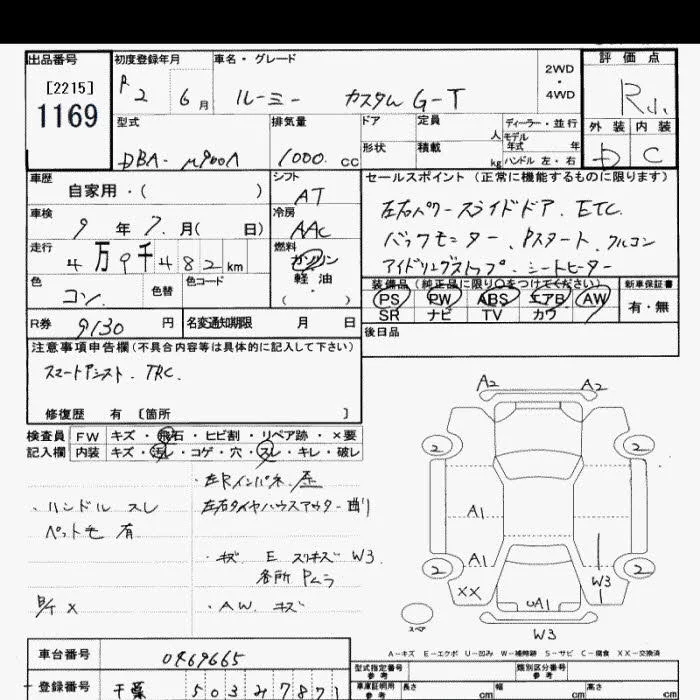 出品番号 初度登録年月 車名・グレード 評価点
[2215] 1169
R 2 6月 ルーミー カスタム G-T 2WD・4WD R小
外装 内装
D C
型式 排気量 ドア 定員 人 ディーラー・並行
モデル年式 年
形状 積載 kg ハンドル 左・右
DBA- M900A 1000 cc
車歴 自家用・( ) シフト AT
セールスポイント (正常に機能するものに限ります)
車検 9年 7月( 日) 冷房 AAC
左右パワースライドドア. ETC.
バックモニター、Pスタート、クルコン
アイドリングストップ・シートヒーター
走行 4万9千482km 燃料 ガソリン
軽油
・( )
色 コン. 色替 色コード
装備品 (純正品に限り○をつけてください) 新車保証書
PS PW ABS エアB AW 有・無
SR ナビ TV カワ
R券 9130 円 名変通知期限 月 日
後日品
注意事項申告欄(不具合内容等は具体的に記入して下さい)
スマートアシスト. TRC.
修復歴 有 〔箇所 〕
検査員記入欄
FW キズ・飛石・ヒビ割・リペア跡・×要
内装 キズ・汚レ・コゲ・穴・スレ・キレ・破レ
・左Rインパネ. 歪
・ハンドル スレ
左右タイヤハウスアウター曲り
ペット毛 有
・キズ E スリキズ W3
各所 Pムラ
・A.W. キズ
A2 A2
2 2
A1
A1
2 2
XX W3
A1
スペア
W3
A-キズ E-エクボ U-凹み W-補修跡 S-サビ C-腐食 XX-交換済
車台番号 0469665
登録番号 千葉 503 み 7871
型式指定番号 参考 類別区分番号 参考
車庫証明用 参考 長さ cm 幅 cm 高さ cm